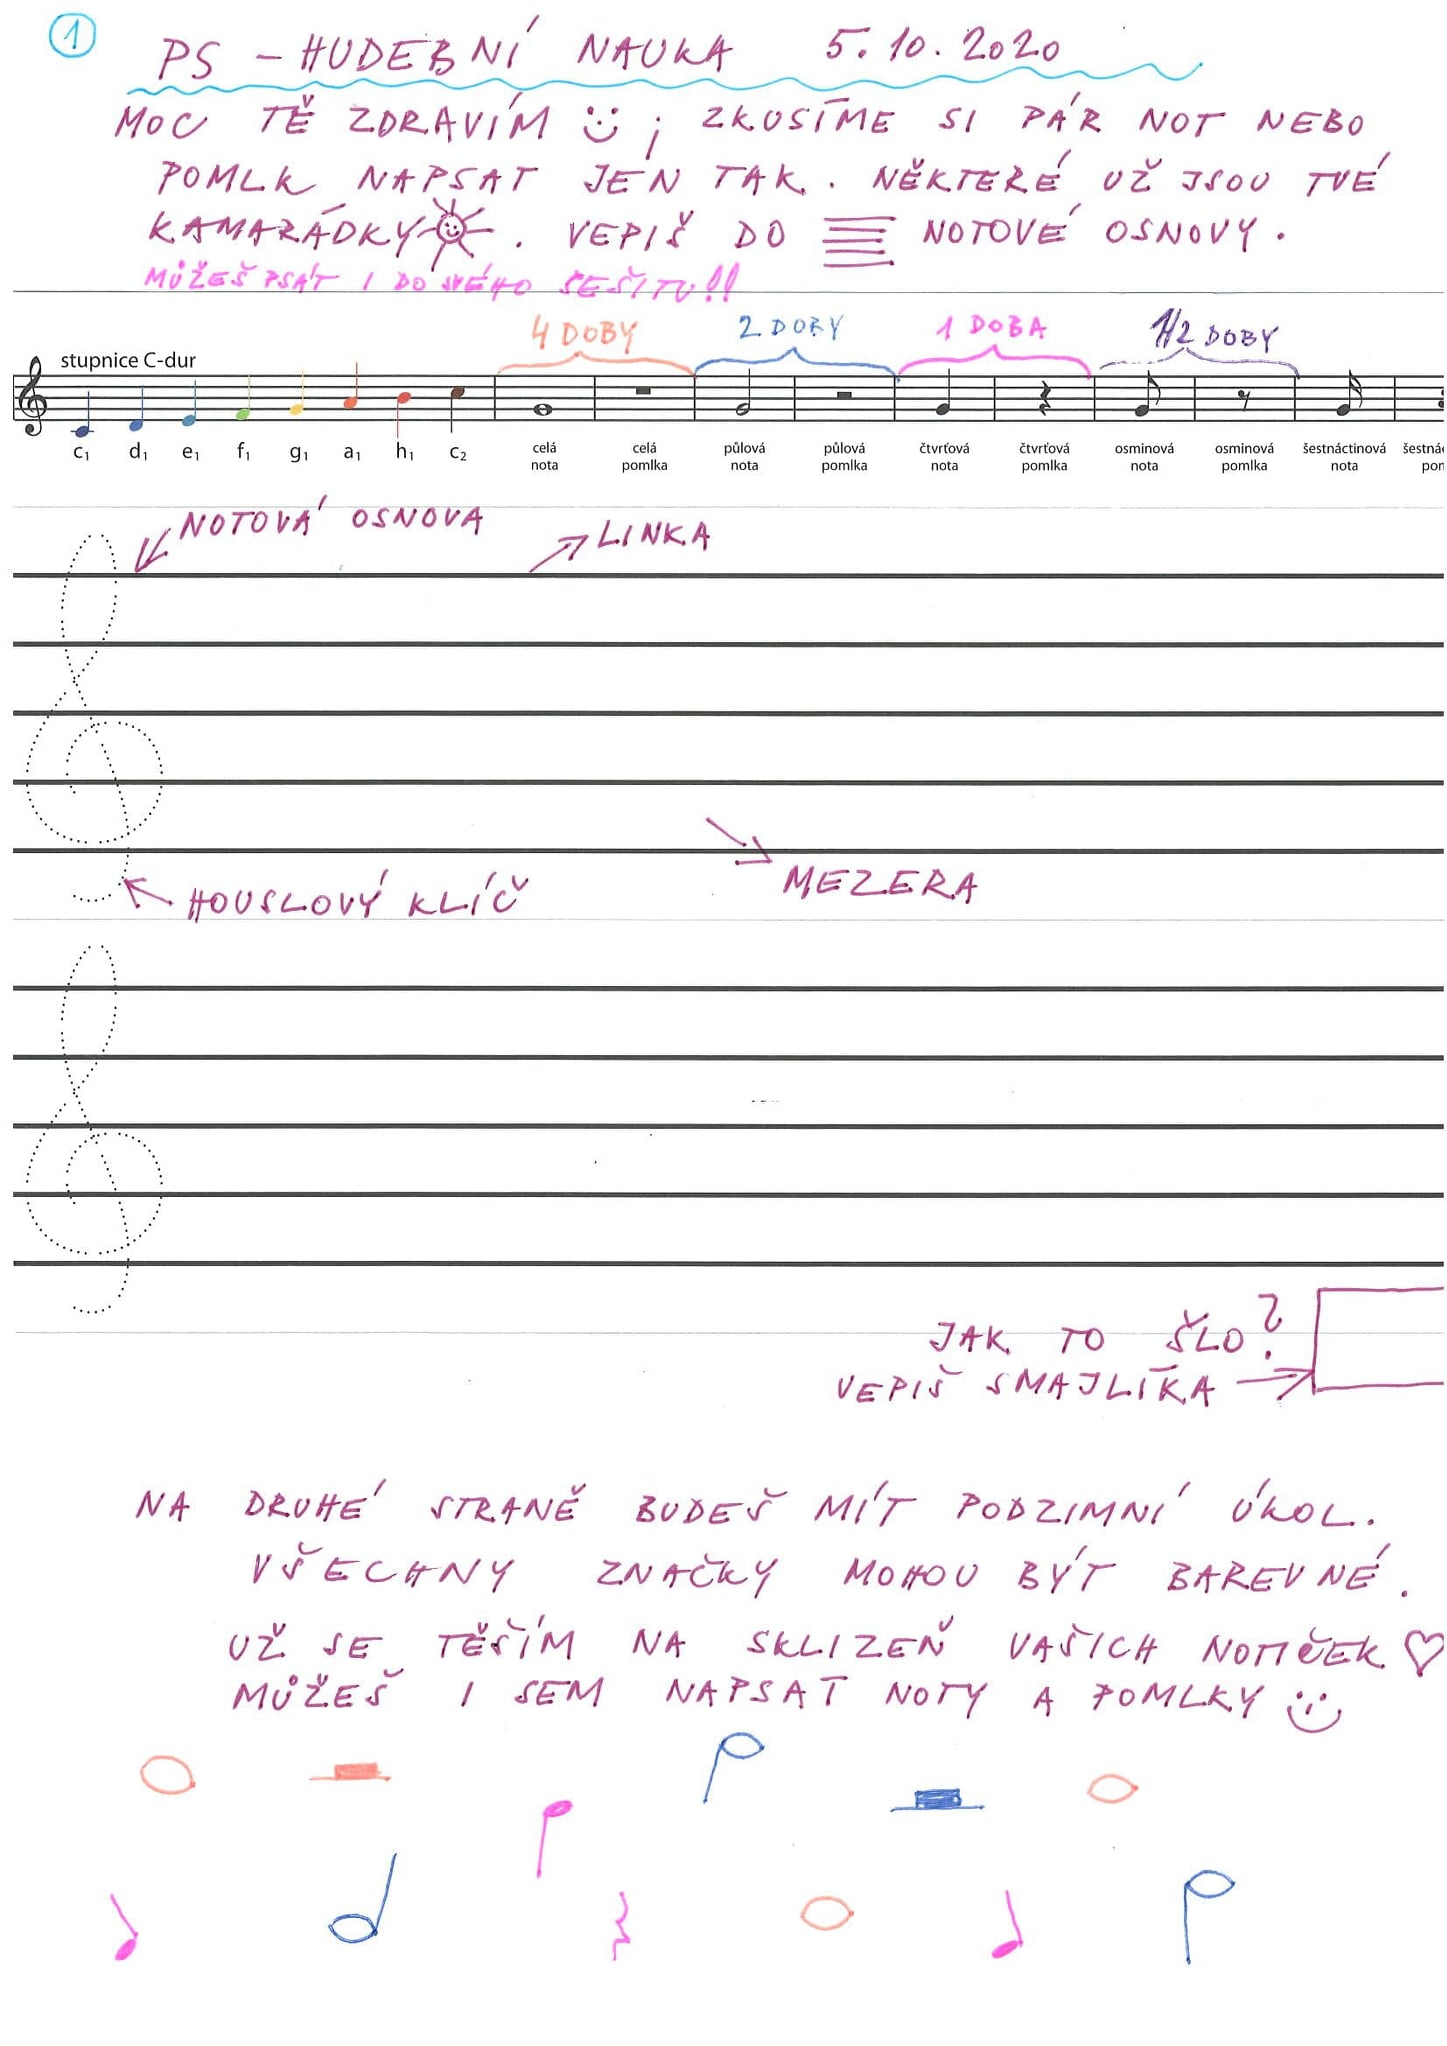 1
PS - HUDEBNÍ NAUKA 5. 10. 2020
MOC TĚ ZDRAVÍM ; ZKUSÍME SI PÁR NOT NEBO
POMLK NAPSAT JEN TAK. NĚKTERÉ UŽ JSOU TVÉ
KAMARÁDKY . VEPIŠ DO NOTOVÉ OSNOVY.
MŮŽEŠ PSÁT I DO SVÉHO SEŠITU!!
4 DOBY 2 DOBY 1 DOBA 1/2 DOBY
stupnice C-dur
c1 d1 e1 f1 g1 a1 h1 c2
celá nota
celá pomlka
půlová nota
půlová pomlka
čtvrťová nota
čtvrťová pomlka
osminová nota
osminová pomlka
šestnáctinová nota
šestnác
pom
NOTOVÁ OSNOVA
LINKA
MEZERA
HOUSLOVÝ KLÍČ
JAK TO ŠLO?
VEPIŠ SMAJLÍKA
NA DRUHÉ STRANĚ BUDEŠ MÍT PODZIMNÍ ÚKOL.
VŠECHNY ZNAČKY MOHOU BÝT BAREVNÉ.
UŽ SE TĚŠÍM NA SKLIZEŇ VAŠICH NOTIČEK
MŮŽEŠ I SEM NAPSAT NOTY A POMLKY